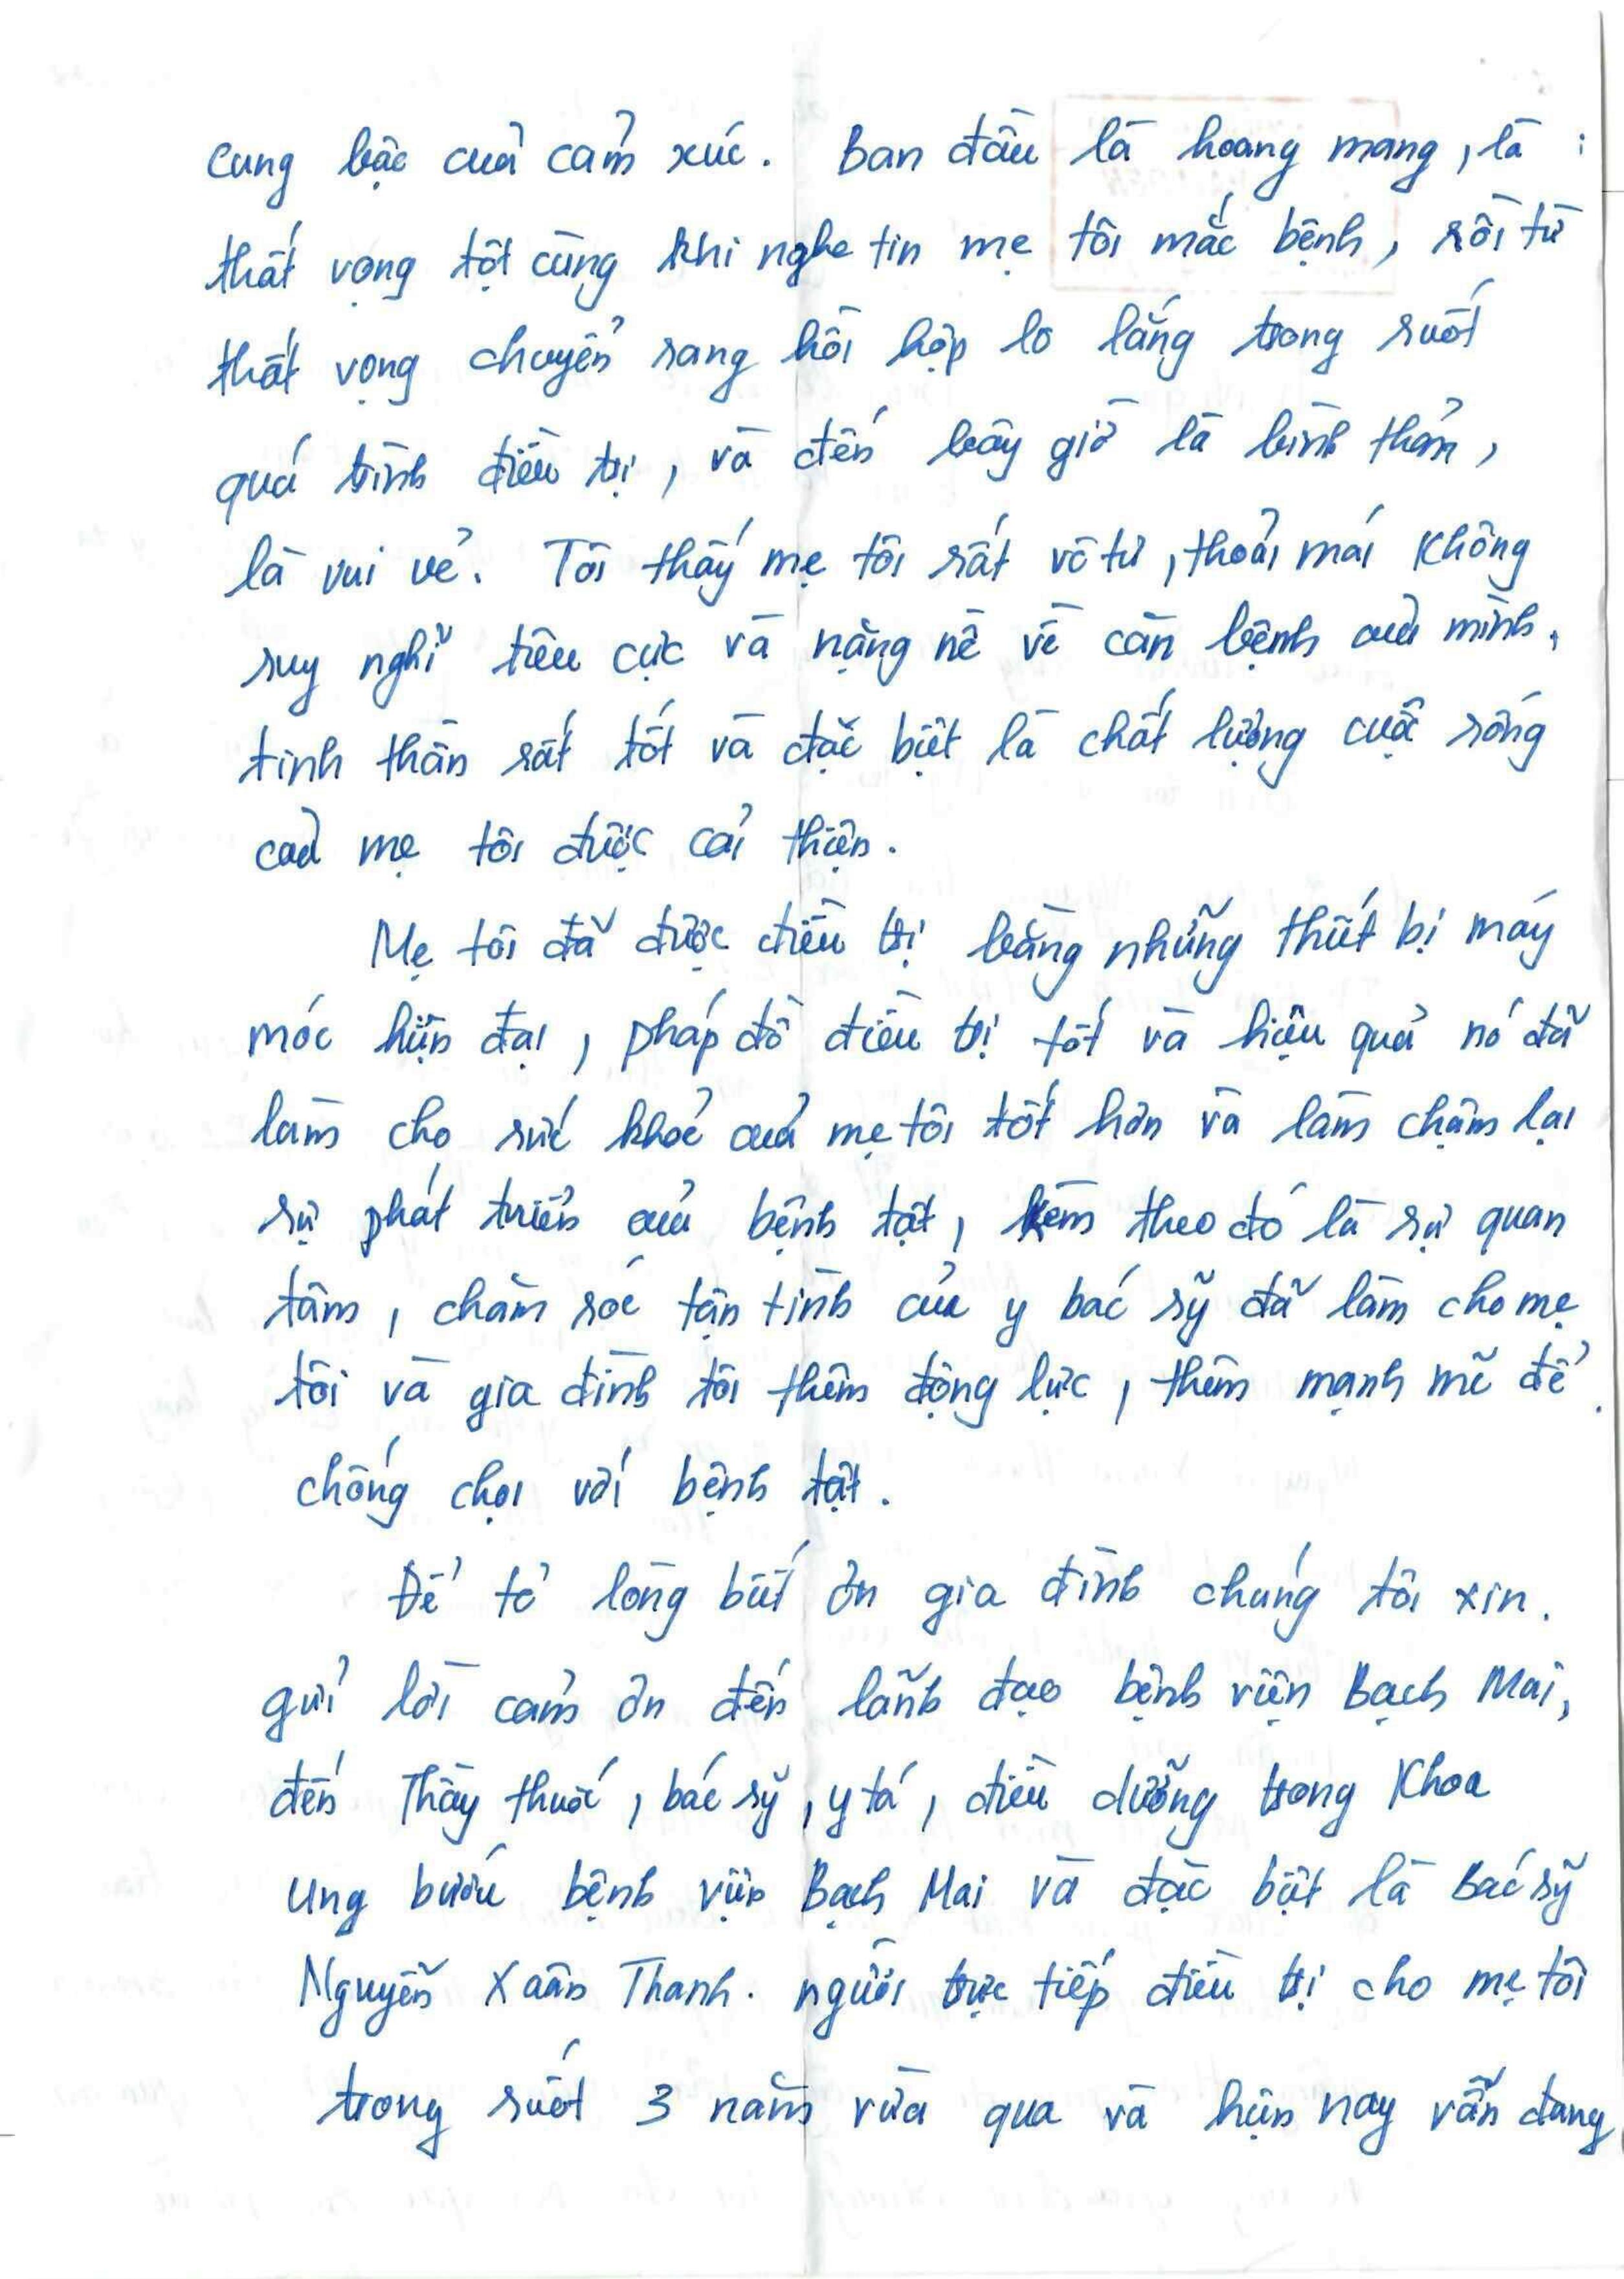 cung bậc của cảm xúc. Ban đầu là hoang mang, là
thất vọng tột cùng khi nghe tin mẹ tôi mắc bệnh, rồi từ
thất vọng chuyển sang hồi hộp lo lắng trong suốt
quá trình điều trị, và đến bây giờ là bình thản,
là vui vẻ. Tôi thấy mẹ tôi rất vô tư, thoải mái không
suy nghĩ tiêu cực và nặng nề về căn bệnh của mình,
tinh thần rất tốt và đặc biệt là chất lượng cuộc sống
của mẹ tôi được cải thiện.
Mẹ tôi đã được điều trị bằng những thiết bị máy
móc hiện đại, pháp đồ điều trị tốt và hiệu quả nó đã
làm cho sức khoẻ của mẹ tôi tốt hơn và làm chậm lại
sự phát triển của bệnh tật, kèm theo đó là sự quan
tâm, chăm sóc tận tình của y bác sỹ đã làm cho mẹ
tôi và gia đình tôi thêm động lực, thêm mạnh mẽ để
chống chọi với bệnh tật.
Để tỏ lòng biết ơn gia đình chúng tôi xin.
gửi lời cảm ơn đến lãnh đạo bệnh viện Bạch Mai,
đến Thầy thuốc, bác sỹ, y tá, điều dưỡng trong Khoa
Ung bướu bệnh viện Bạch Mai và đặc biệt là Bác sỹ
Nguyễn Xuân Thanh. người trực tiếp điều trị cho mẹ tôi
trong suốt 3 năm vừa qua và hiện nay vẫn đang